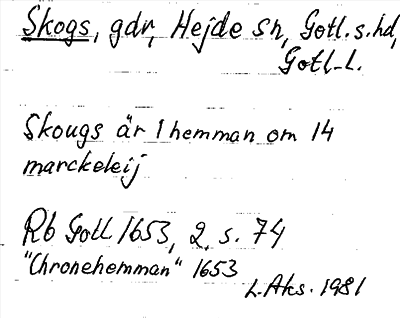 Skogs, gdr, Hejde sn, Gotl. s. hd,
Gotl. l.
Skougs är 1 hemman om 14
marckeleij
Rb Gotl 1653, 2, s. 74
"Chronehemman" 1653
L. Aks. 1981